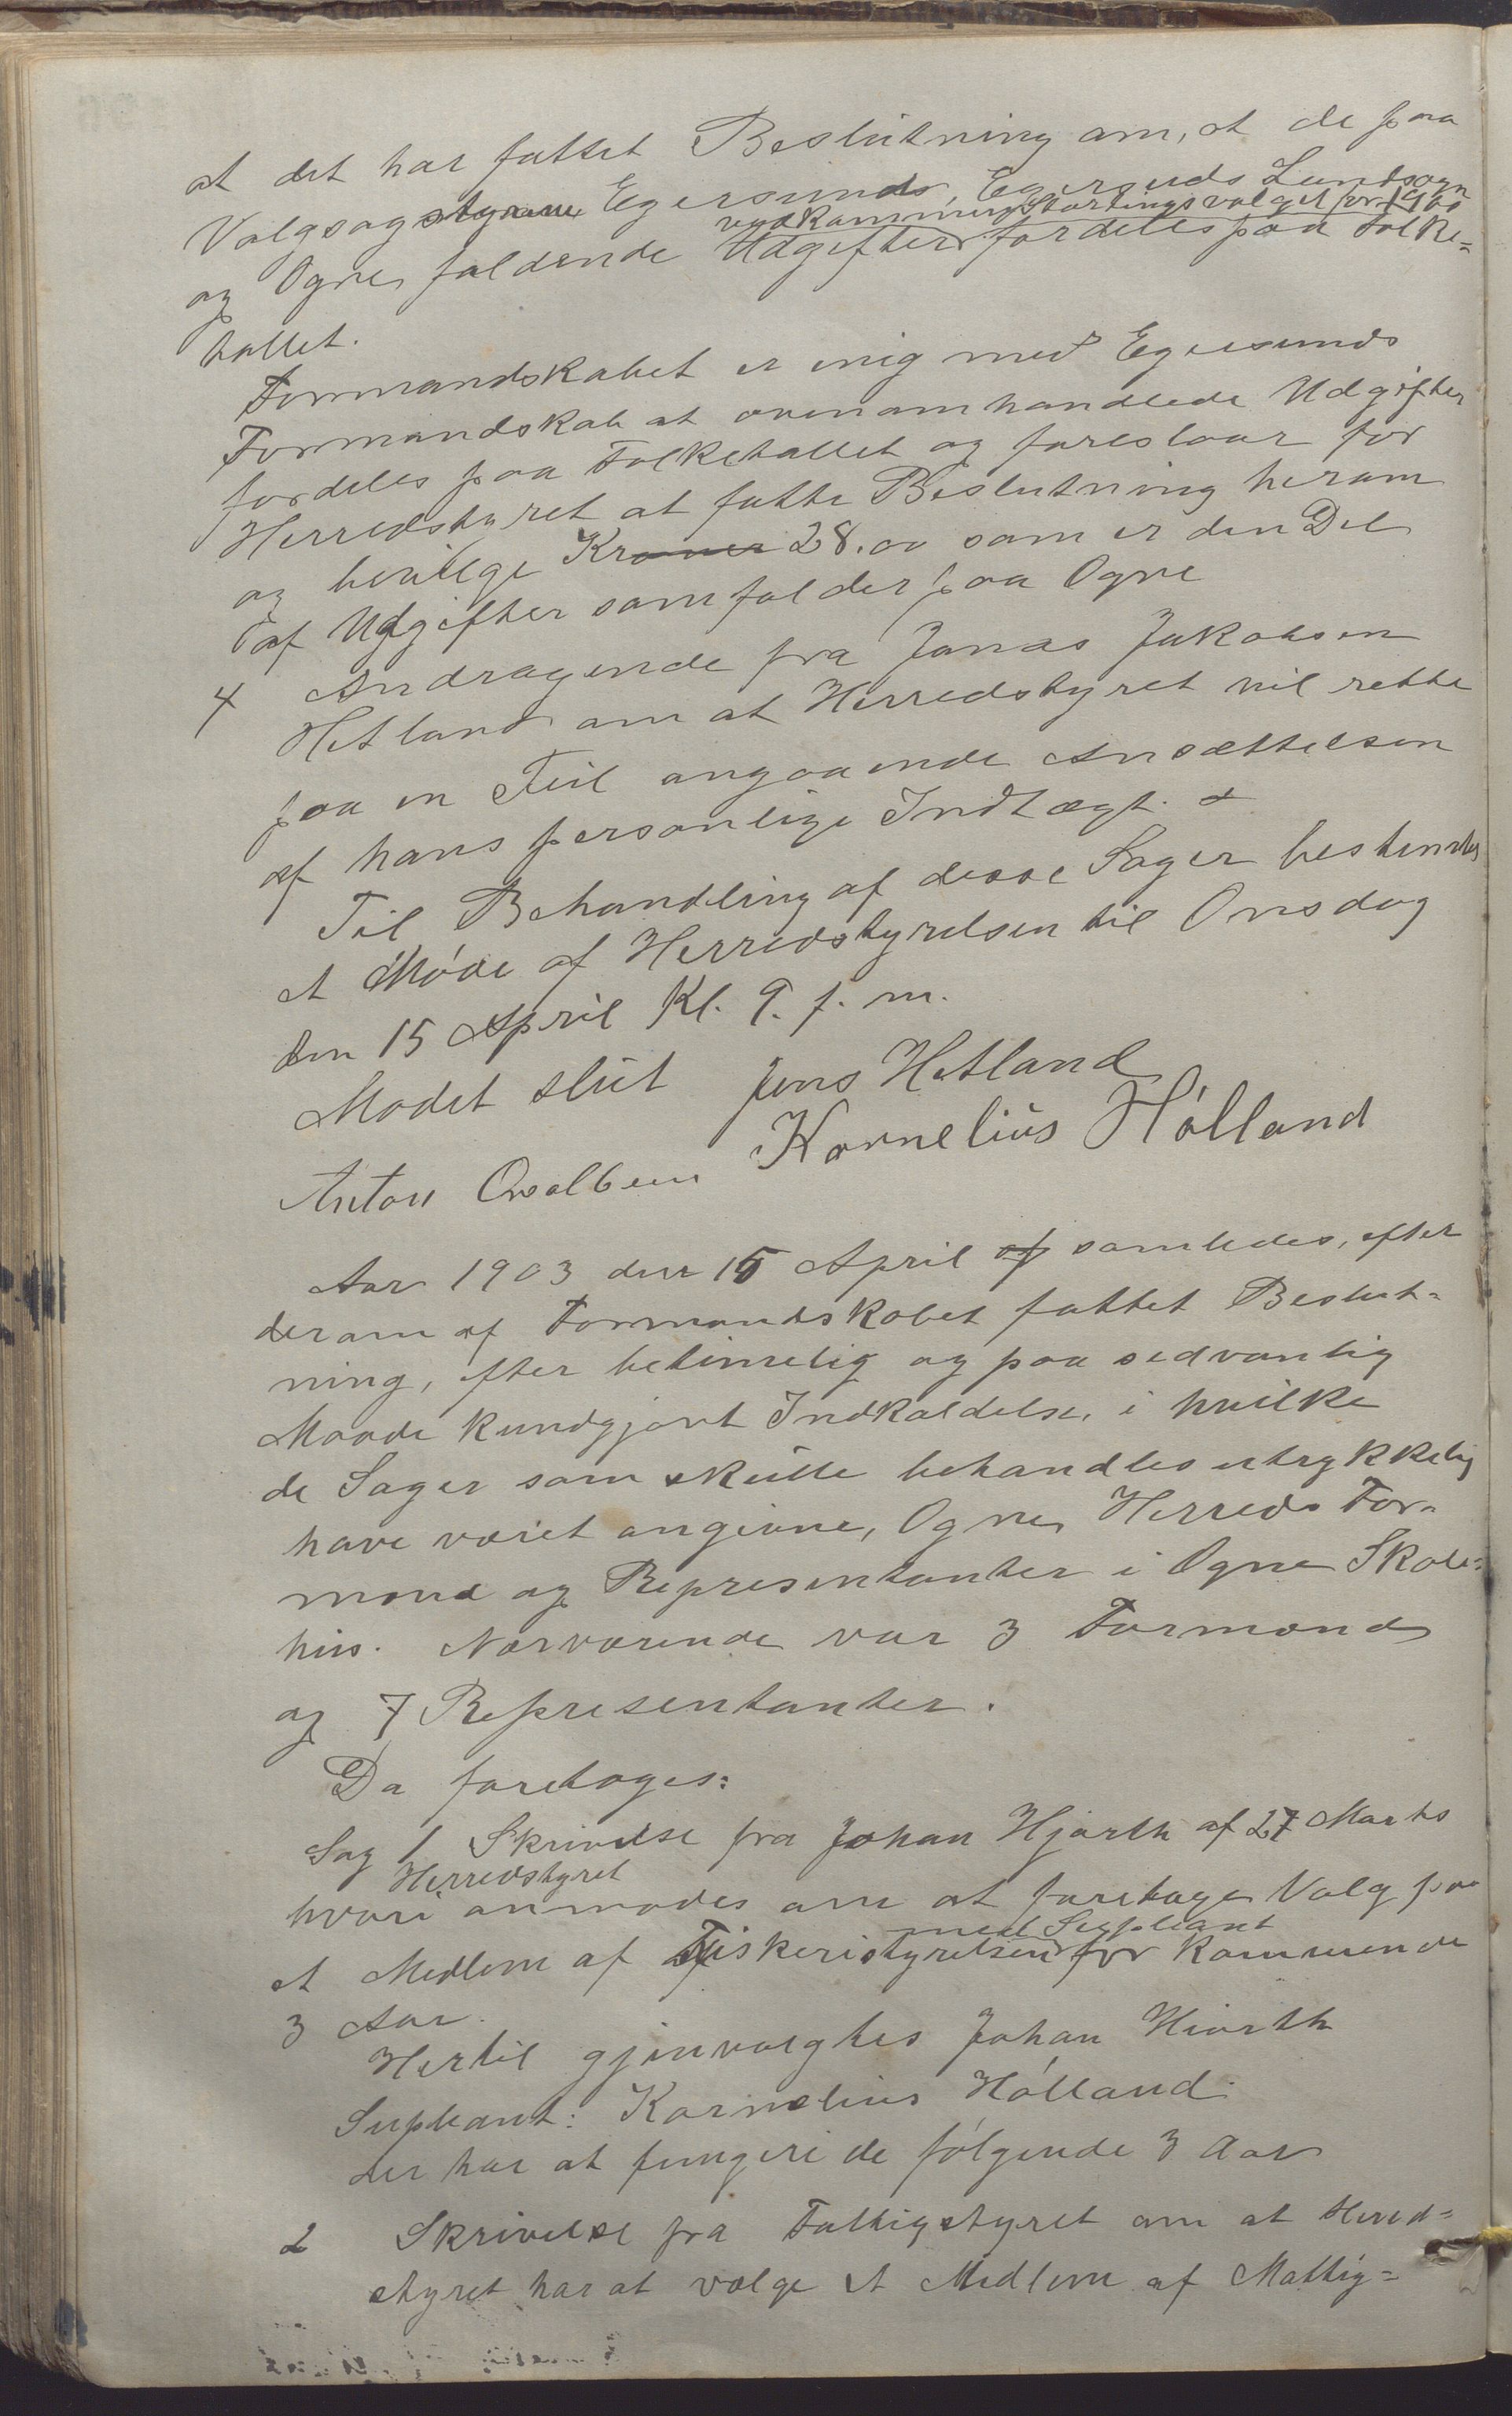 at det har fattet Beslutning om, at de paa
Valgsogstyrene Egersunds, Egersuds Landsogn
vedkommende Stortingsvalget for 1900
og Ogne faldende Udgifter fordeles paa Folke=
tallet.
Formandskabet er enig med Egersunds
Formandskab at ovenomhandlede Udgifter
fordeles paa Folketallet og foreslaar for
Herredstyret at fatte Beslutning herom
og bevilge Kroner 28.00 som er den Del
af Udgifter som falder paa Ogne
4 Andragende fra Jonas Jakobsen
Hetland om at Herredstyret vil rette
paa en Feil angaaende Ansættelsen
af hans personlige Indtægt.
Til Behandling af disse Sager bestemtes
et Møde af Herredstyrelsen til Onsdag
den 15 April Kl. 9. f. m.
Modet slut Jens Hetland
Kornelius Hólland
Anton Ovalben
Aar 1903 den 15 April af samledes, efter
derom af Formandskabet fattet Beslut-
ning, efter betimelig og paa sedvanlig
Maade kundgjort Indkaldelse, i hvilke
de Sager som skulle behandles utrykkelig
have været angivne, Ogne Herreds For-
mænd og Representanter i Ogne Skole=
hus. Nærværende var 3 Formænd
og 7 Representanter.
Da foretoges:
Sag 1 Skrivelse fra Johan Hjorth af 27 Marts
Herredstyret
hvori anmodes om at foretage Valg paa
med Supleant
et Medlem af Fiskeristyrelsen for kommende
3 Aar.
Hertil gjenvalgtes Johan Hiorth
Supleant: Kornelius Hólland
der har at fungere de følgende 3 Aar
2 Skrivelse fra Fattigstyret om at Hered=
styret har at vælge et Medlem af Mattig=